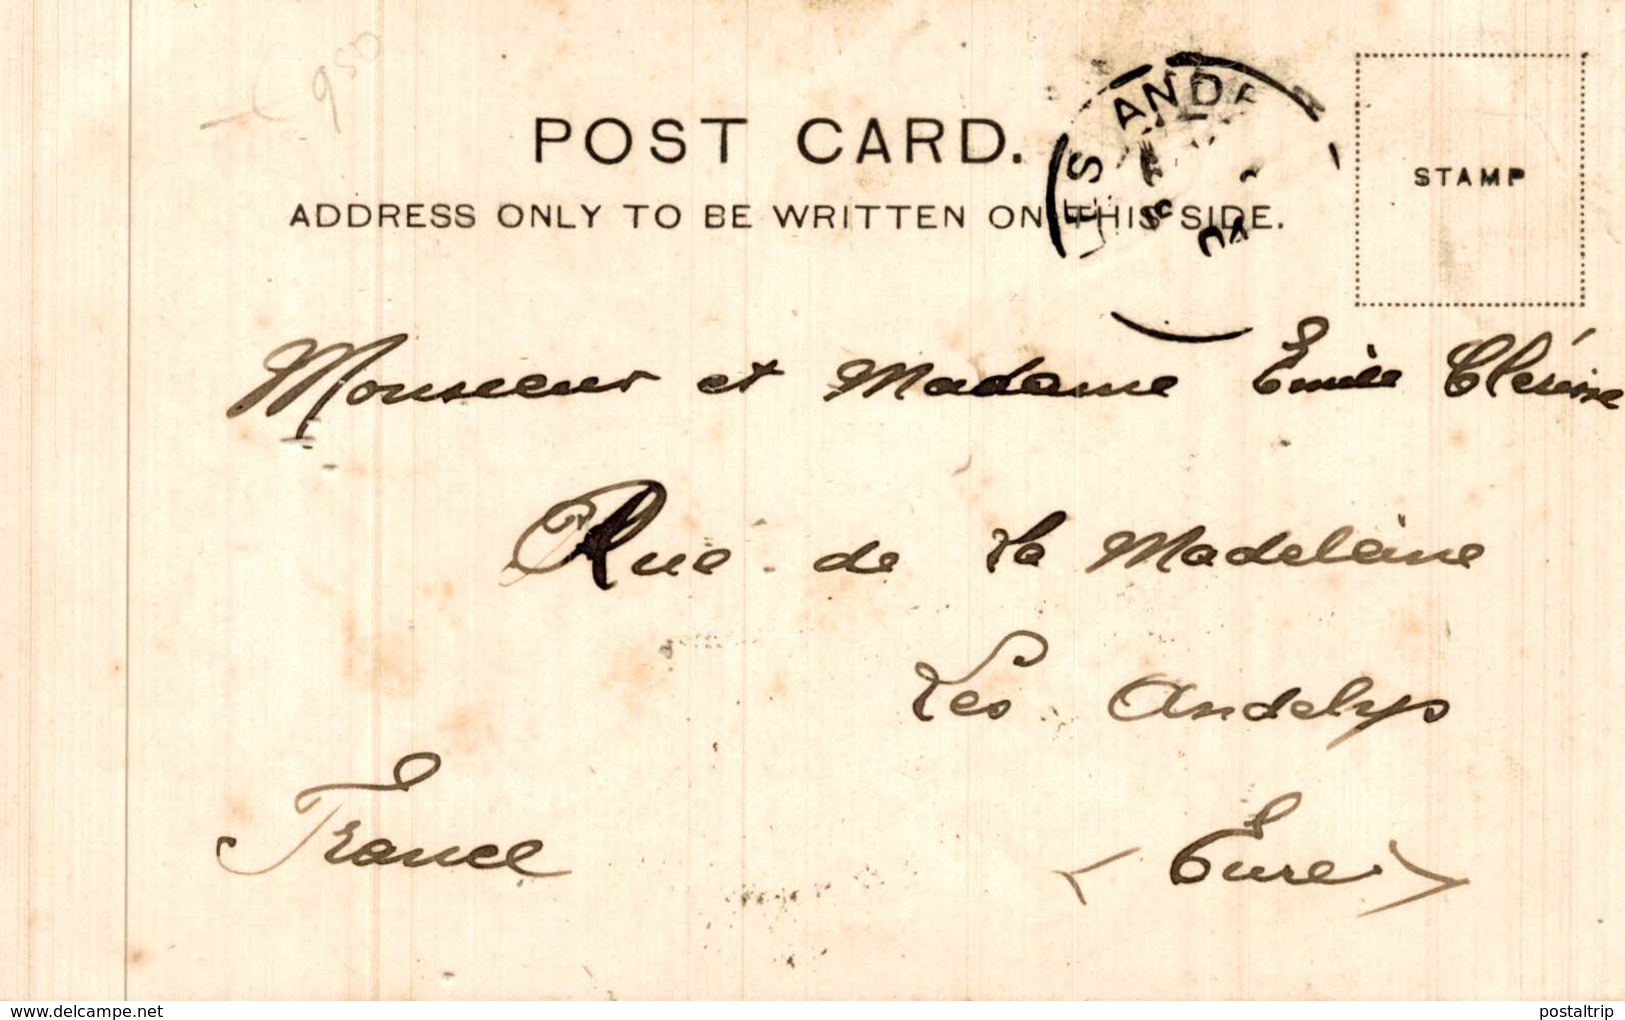 POST CARD.
ADDRESS ONLY TO BE WRITTEN ON THIS SIDE.
STAMP
LES ANDE
04
Monsieur et Madame Emile
Rue de la Madeleine
Les Andelys
France
(Eure)
www.delcampe.net
postaltrip